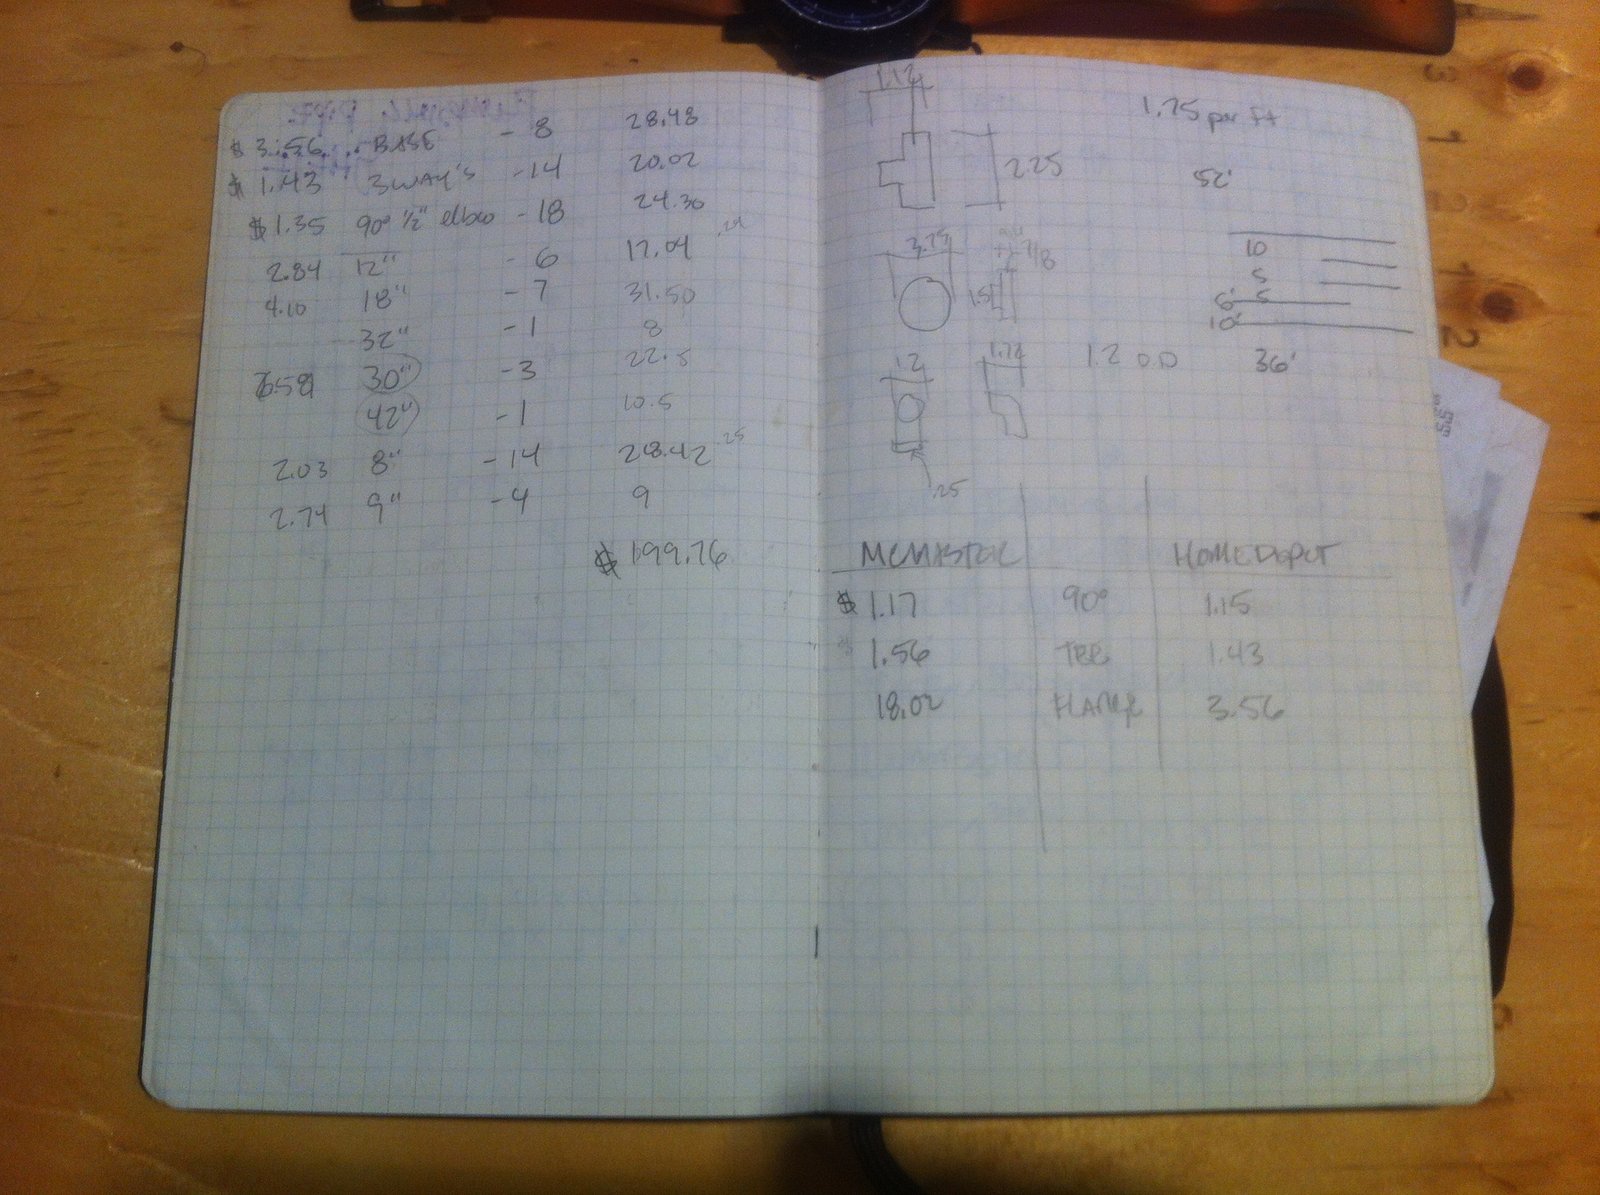 $ 3.56 BASE - 8 28.48
$ 1.43 3 WAY'S - 14 20.02
$ 1.35 90° 1/2" elbow - 18 24.30
2.84 12" - 6 17.04 .24
4.10 18" - 7 31.50
32" - 1 8
30" - 3 22.5
42" - 1 10.5
2.03 8" - 14 28.42 .25
2.74 9" - 4 9
$ 199.76
1.12
1.75 per ft
2.25
52'
3.75
7/8
1.5
10
5
6' 5
10'
1.2
1.2 O.D
36'
.25
MCMASTER HOME DEPOT
$ 1.17 90° 1.15
$ 1.56 TEE 1.43
18.02 FLANGE 3.56